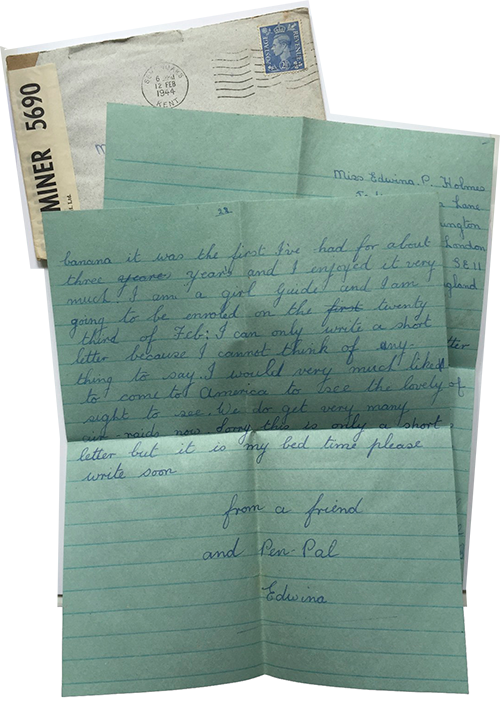 MINER 5690
6
12 FEB
1944
KENT
POSTAGE
REVENUE
Miss Edwina. P. Holmes
Lane
S.E.11
22.
banana it was the first I've had for about
three years years and I enjoyed it very
much I am a girl Guide and I am
going to be enroled on the first twenty
third of Feb: I can only write a short
letter because I cannot think of any-
thing to say. I would very much liked
to come to America to see the lovely of
sight to see. We do get very many
air-raids now Sorry this is only a short
letter but it is my bed time please
write soon
from a friend
and Pen-Pal
Edwina